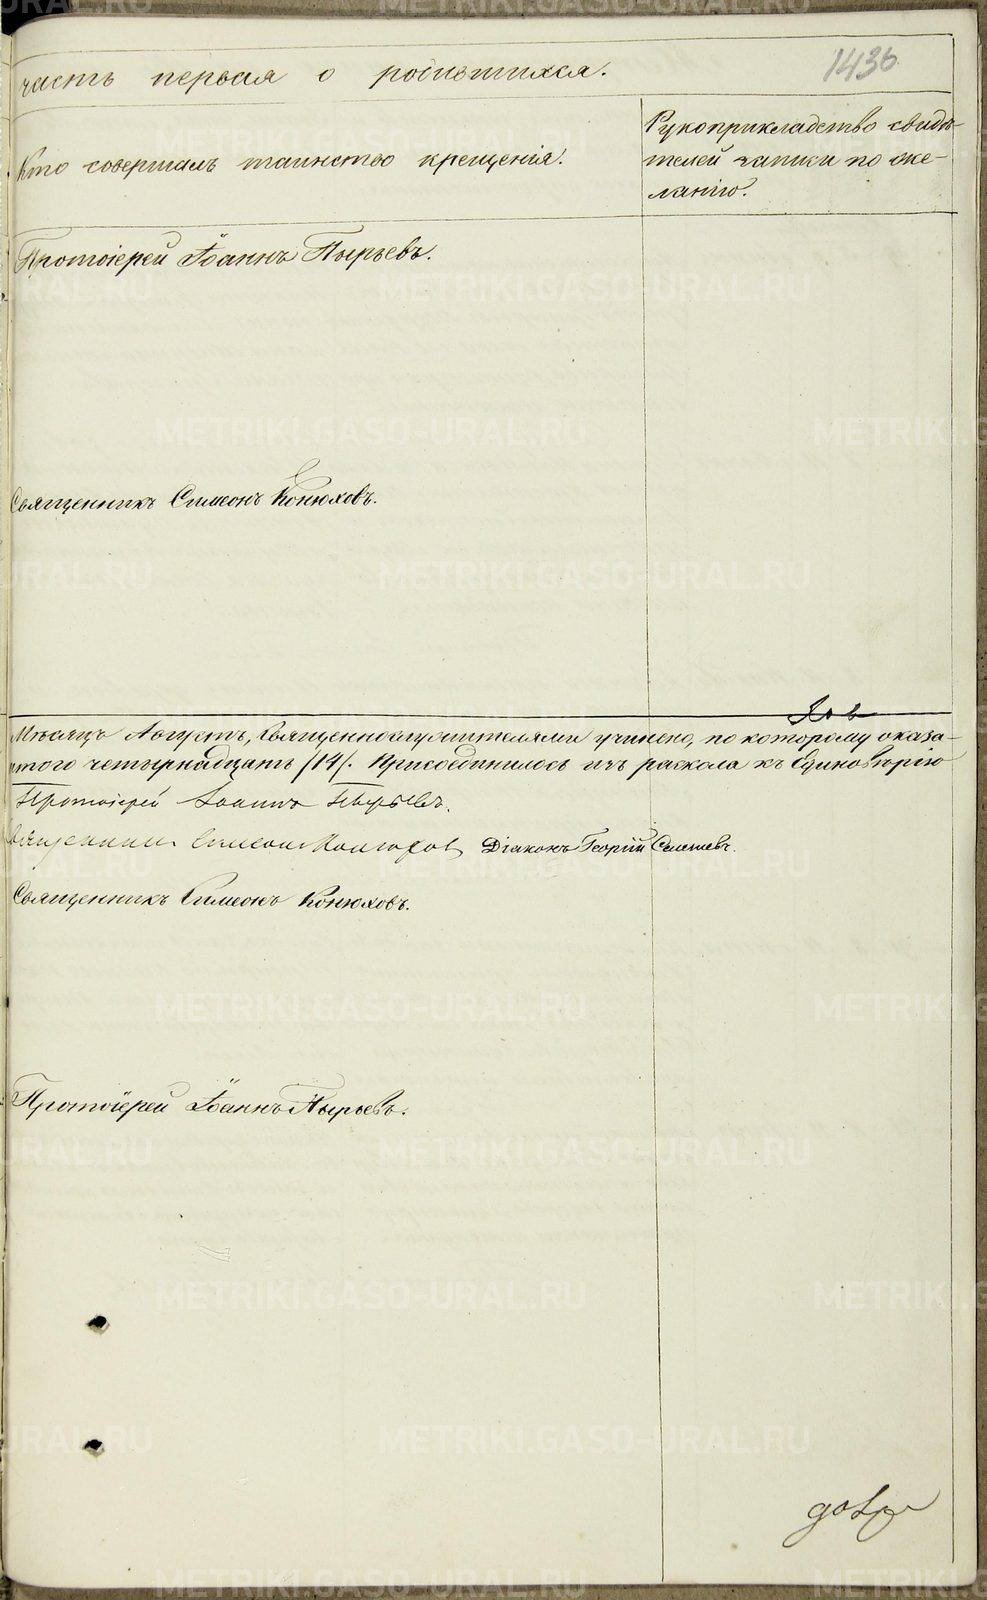 часть первая о родившихся.
1436
Кто совершалъ таинство крещенія.
Рукоприкладство свидѣ-
телей записи по же-
ланію.
Протоіерей Іоаннъ Пырьевъ.
Священникъ Симеонъ Конюховъ.
Мѣсяцъ Августъ, Священнослужителями учинено, по которому оказа-
того четырнадцать /14/. Присоединилось изъ раскола къ Единовѣрію
Протоіерей Іоаннъ Пырьевъ.
Священникъ Симеонъ Конюховъ Діаконъ Георгій
Священникъ Симеонъ Конюховъ.
Протоіерей Іоаннъ Пырьевъ.
METRIKI.GASO-URAL.RU